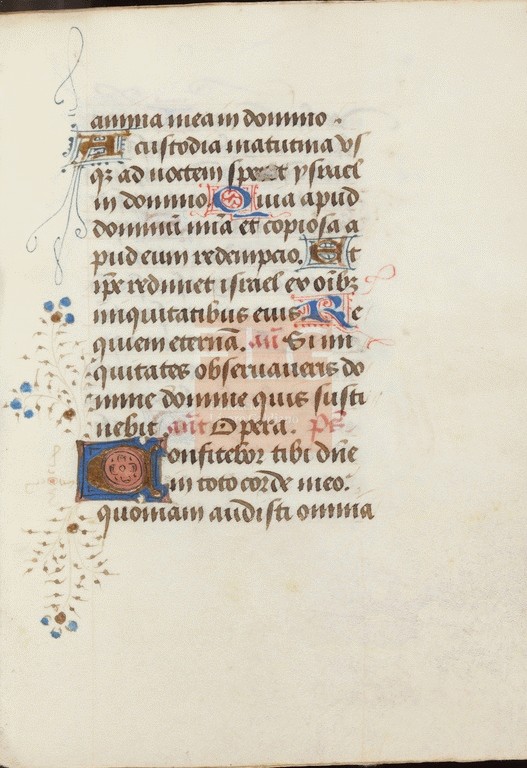 anima mea in domino.
A custodia matutina vs
q̨ ad noctem speret ysrael
in domino Quia apud
dominū mīa et copiosa a
pud eum redempcio. Et
ipē redimet israel ex oībꝫ
iniquitatibus eius Re
quiem eternā. añ Si ini
quitates observaveris do
mine domine quis susti
nebit añt Opera. Ps̄
Confitebor tibi dn̄e
in toto corde meo.
quoniam audisti omnia